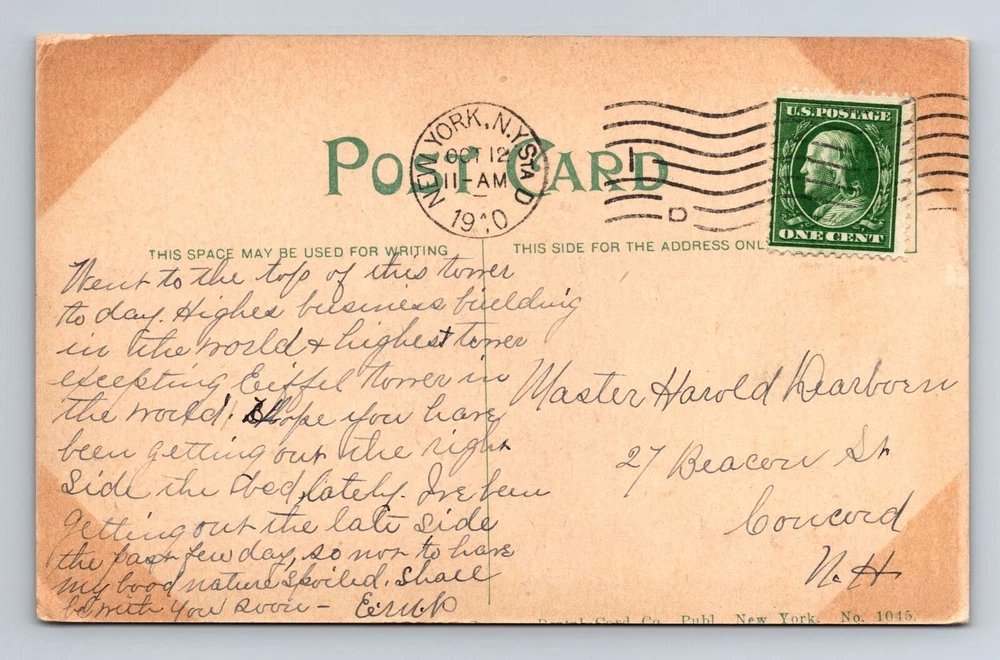 POST CARD
NEW YORK, N.Y. STA D
OCT 12
11-AM
1910
D
U.S. POSTAGE
ONE CENT
THIS SPACE MAY BE USED FOR WRITING
THIS SIDE FOR THE ADDRESS ONLY
Went to the top of this tower
to day. Highes business building
in the world & highest tower
excepting Eiffel tower in
the world. hope you have
been getting out the right
side the bed, lately. I've been
getting out the late side
the past few day, so not to have
my good nature spoiled. Shall
be with you soon -
Master Harold Dearborn
27 Beacon St
Concord
N. H
Postal Card Co. Publ. New York. No. 1045.